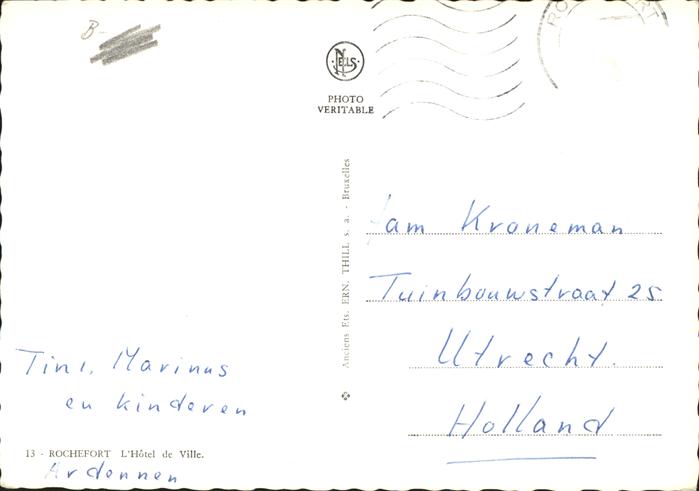 B-
NELS
PHOTO
VERITABLE
Anciens Ets. ERN. THILL s. a. - Bruxelles
fam Kraneman
Tuinbouwstraat 25
Utrecht.
Holland
Tini, Marinus
en kinderen
13 - ROCHEFORT L'Hôtel de Ville.
Ardennen